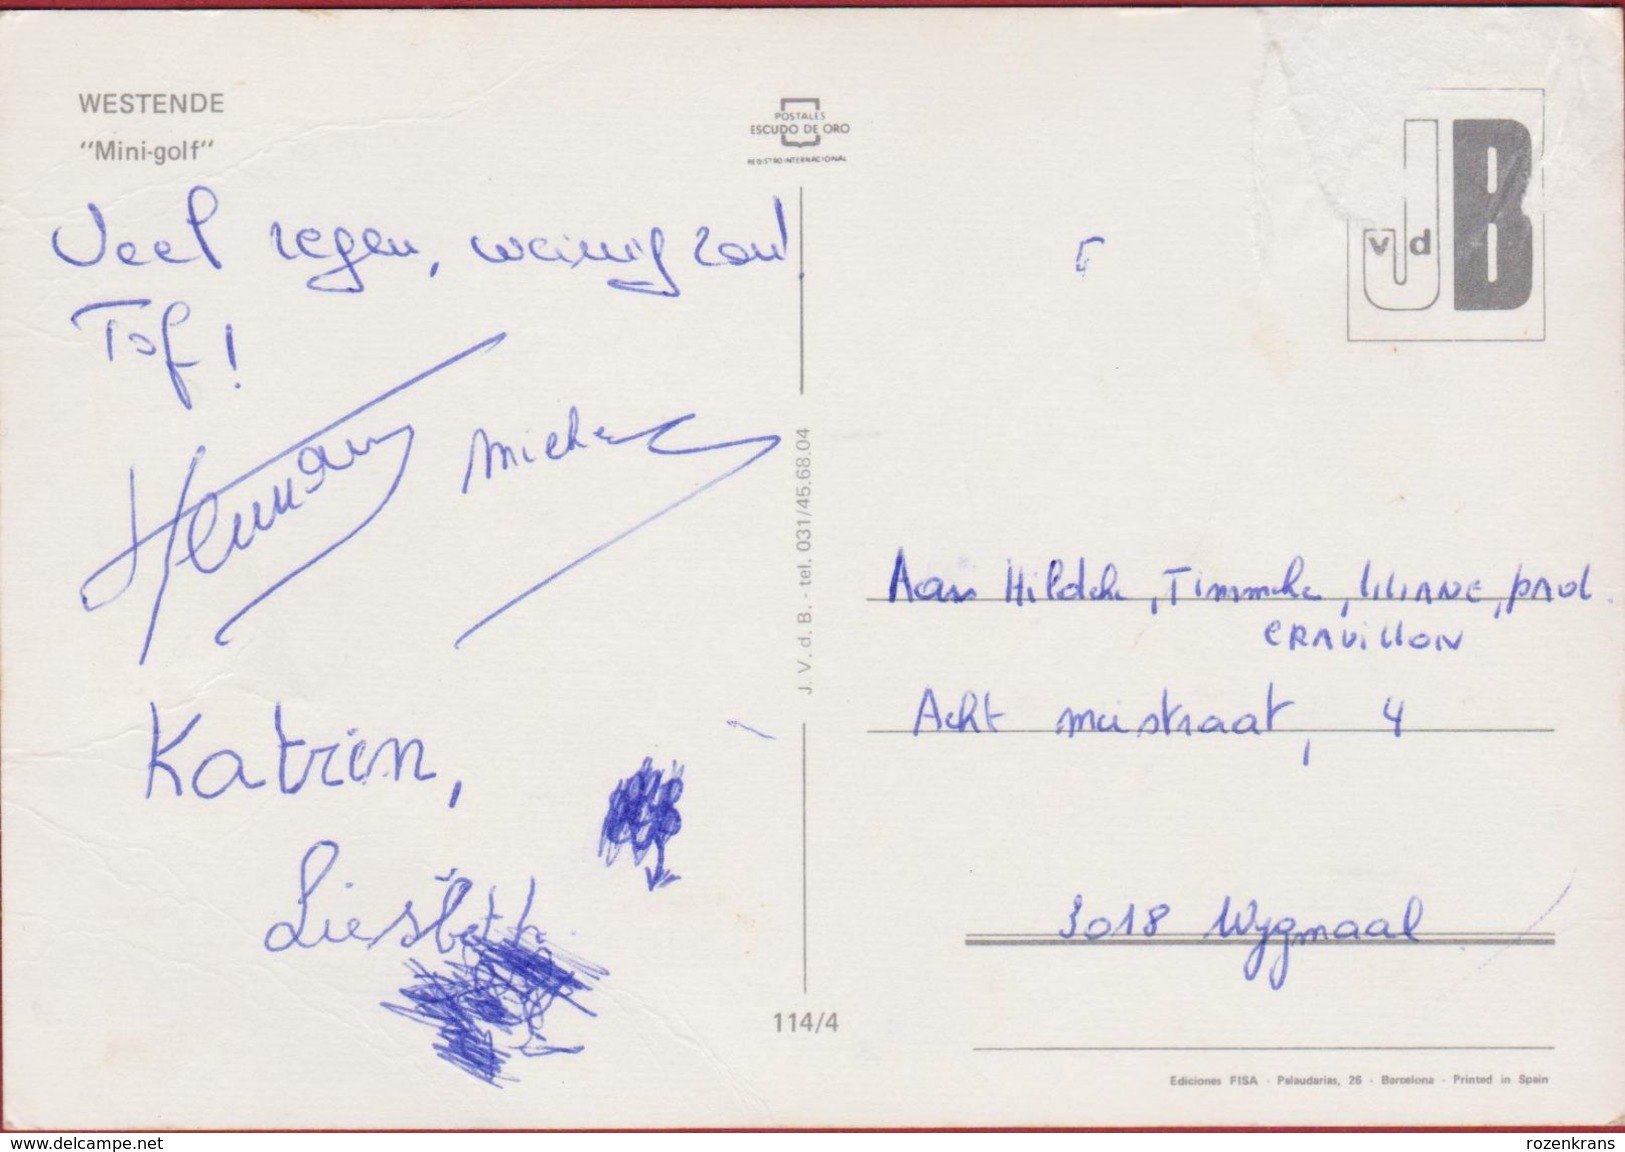 WESTENDE
"Mini-golf"
POSTALES
ESCUDO DE ORO
REGISTRO INTERNACIONAL
v d
J B
Veel regen, weinig zon!
Tof!
Herman Mieke
Katrien,
Liesbeth
J. V. d. B. - tel. 031/45.68.04
114/4
Aan Hildeke, Timmeke, LILIANE, PAUL
CRAVILLON
Acht meistraat, 4
3018 Wygmaal
Ediciones FISA - Palaudarias, 26 - Barcelona - Printed in Spain
www.delcampe.net
rozenkrans